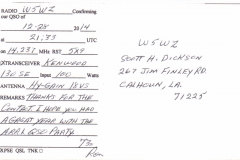 RADIO W5WZ Confirming
our QSO of
12-28 2014
at 21:33 UTC
on 14.237 MHz RST 5x9
XTRANSCEIVER KENWOOD
130 SE Input 100 Watts
ANTENNA HY-GAIN 18VS
REMARKS THANKS FOR THE
CONTACT. I HOPE YOU HAD
A GREAT YEAR WITH THE
ARRL QSO PARTY
73
XPSE QSL TNX Ron
W5WZ
SCOTT H. DICKSON
267 JIM FINLEY RD.
CALHOUN, LA.
71225